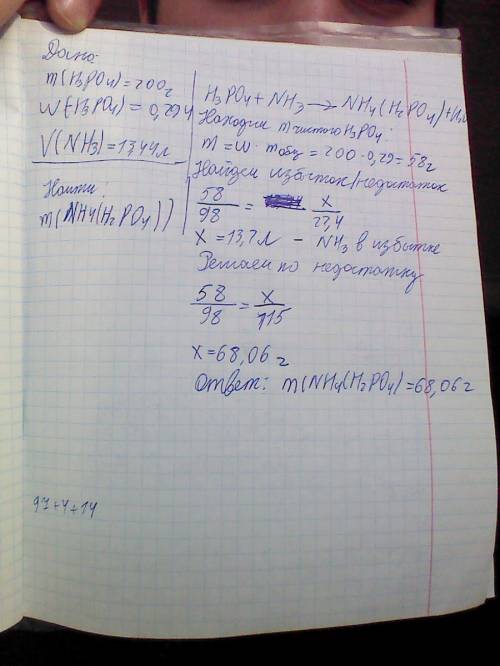 Дано:
m(H3PO4)=200г
W(H3PO4)=0,294
V(NH3)=13,44л
Найти:
m(NH4(H2PO4))
H3PO4+NH3→NH4(H2PO4)
Находим m чистого H3PO4:
m=W·mобщ=200·0,29=58г
Найдем избыток/недостаток
58/98 = x/22,4
x=13,7л – NH3 в избытке
Решаем по недостатку
58/98 = x/115
x=68,06г
Ответ: m(NH4(H2PO4)=68,06г
97+4+14